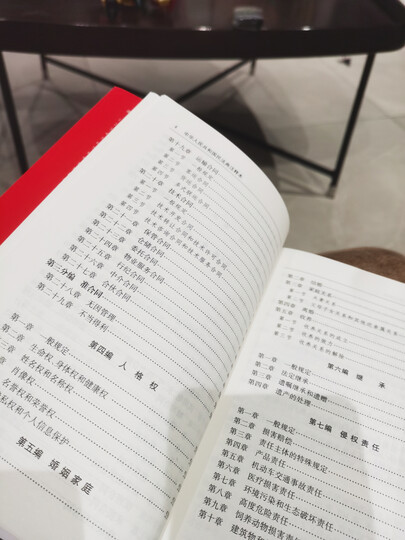 中华人民共和国民法典注释本
第十九章 运输合同
第一节 一般规定
第二节 客运合同
第三节 货运合同
第四节 多式联运合同
第二十章 技术合同
第一节 一般规定
第二节 技术开发合同
第三节 技术转让合同和技术许可合同
第四节 技术咨询合同和技术服务合同
第二十一章 保管合同
第二十二章 仓储合同
第二十三章 委托合同
第二十四章 物业服务合同
第二十五章 行纪合同
第二十六章 中介合同
第二十七章 合伙合同
第三分编 准合同
第二十八章 无因管理
第二十九章 不当得利
第四编 人格权
第一章 一般规定
第二章 生命权、身体权和健康权
章 姓名权和名称权
肖像权
名誉权和荣誉权
私权和个人信息保护
第五编 婚姻家庭
第二章 结婚
第三章 家庭关系
第四章 离婚
第五章 收养
第六编 继承
第一章 一般规定
第二章 法定继承
第三章 遗嘱继承和遗赠
第四章 遗产的处理
第七编 侵权责任
第一章 一般规定
第二章 损害赔偿
第三章 责任主体的特殊规定
第四章 产品责任
第五章 机动车交通事故责任
第六章 医疗损害责任
第七章 环境污染和生态破坏责任
第八章 高度危险责任
第九章 饲养动物损害责任
第十章 建筑物和